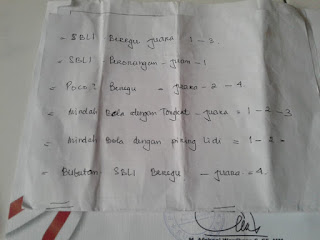 = SBLI Beregu juara 1 - 3.
= SBLI Perorangan - juara - 1
= Poco2 Beregu - juara - 2 - 4.
= Mindah Bola dengan Tongkat - juara = 1 - 2 - 3
= Mindah Bola dengan piring Lidi = 1 - 2 =
= Bubutan SBLI Beregu - juara = 4.